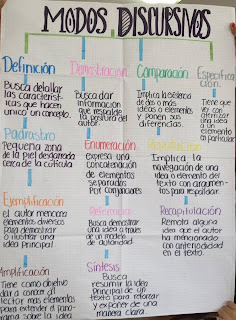 MODOS DISCURSIVOS
Definición
Busca detallar
las caracterist-
icas que hacen
unico un concepto.
Demostración
Busca dar
información
que respalde
la postura del
autor.
Comparación
Implica la existencia
de dos o más
ideas o elementos
y ponen sus
diferencias.
Especifica
ción.
Tiene que
ver con
una idea o
un elemento
en particular
Padrastro
Pequeña zona
de la piel desgarrada
cerca de la cutícula
Enumeración
Expresa una
Concatenación
de elementos
separados
Por conjunciones
Refutación
Implica la
navegación de una
idea o elemento del
texto con argumen-
tos para respaldar.
Ejemplificación
El autor menciona
elementos diversos
para demostrar
o ilustrar una
idea principal
Referencia
Busca demostrar
una idea a traves
de un modelo
de autoridad
Recapitulación
Remota alguna
idea que el autor
ha mencionado
con anterioridad
en el texto.
Síntesis
Busca
resumir la idea
principal de un
texto para retomar
y exponer de una
manera clara.
Amplificación
Tiene como objetivo
dar a conocer al
lector mas elementos
para extender el pano-
rama sobre la idea